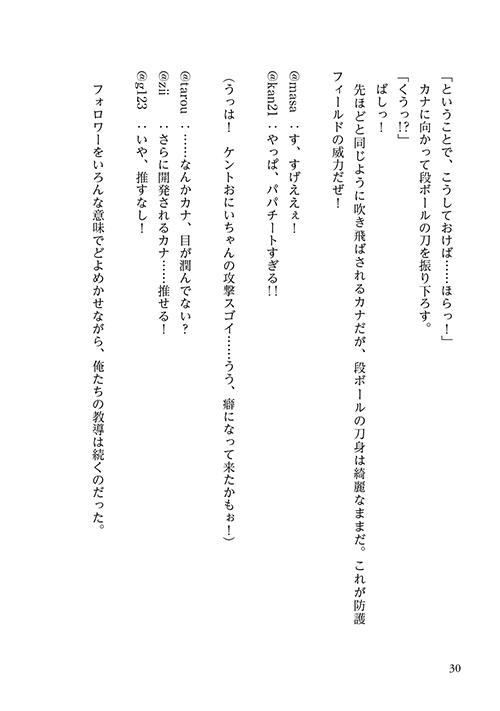 「ということで、こうしておけば……ほらっ！」
カナに向かって段ボールの刀を振り下ろす。
「くうっ!?」
ばしっ！
先ほどと同じように吹き飛ばされるカナだが、段ボールの刀身は綺麗なままだ。これが防護
フィールドの威力だぜ！
@masa ：す、すげええぇ！
@kan21 ：やっぱ、パパチートすぎる!!
（うっは！　ケントおにいちゃんの攻撃スゴイ……うう、癖になって来たかもぉ！）
@tarou ：……なんかカナ、目が潤んでない？
@zii ：さらに開発されるカナ……推せる！
@g123 ：いや、推すなし！
フォロワーをいろんな意味でどよめかせながら、俺たちの教導は続くのだった。
30